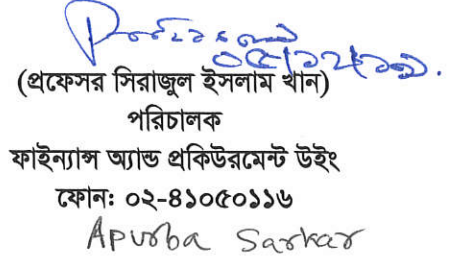 ০৫/১২/১৯.
(প্রফেসর সিরাজুল ইসলাম খান)
পরিচালক
ফাইন্যান্স অ্যান্ড প্রকিউরমেন্ট উইং
ফোন: ০২-৪১০৫০১১৬
Apurba Sarkar